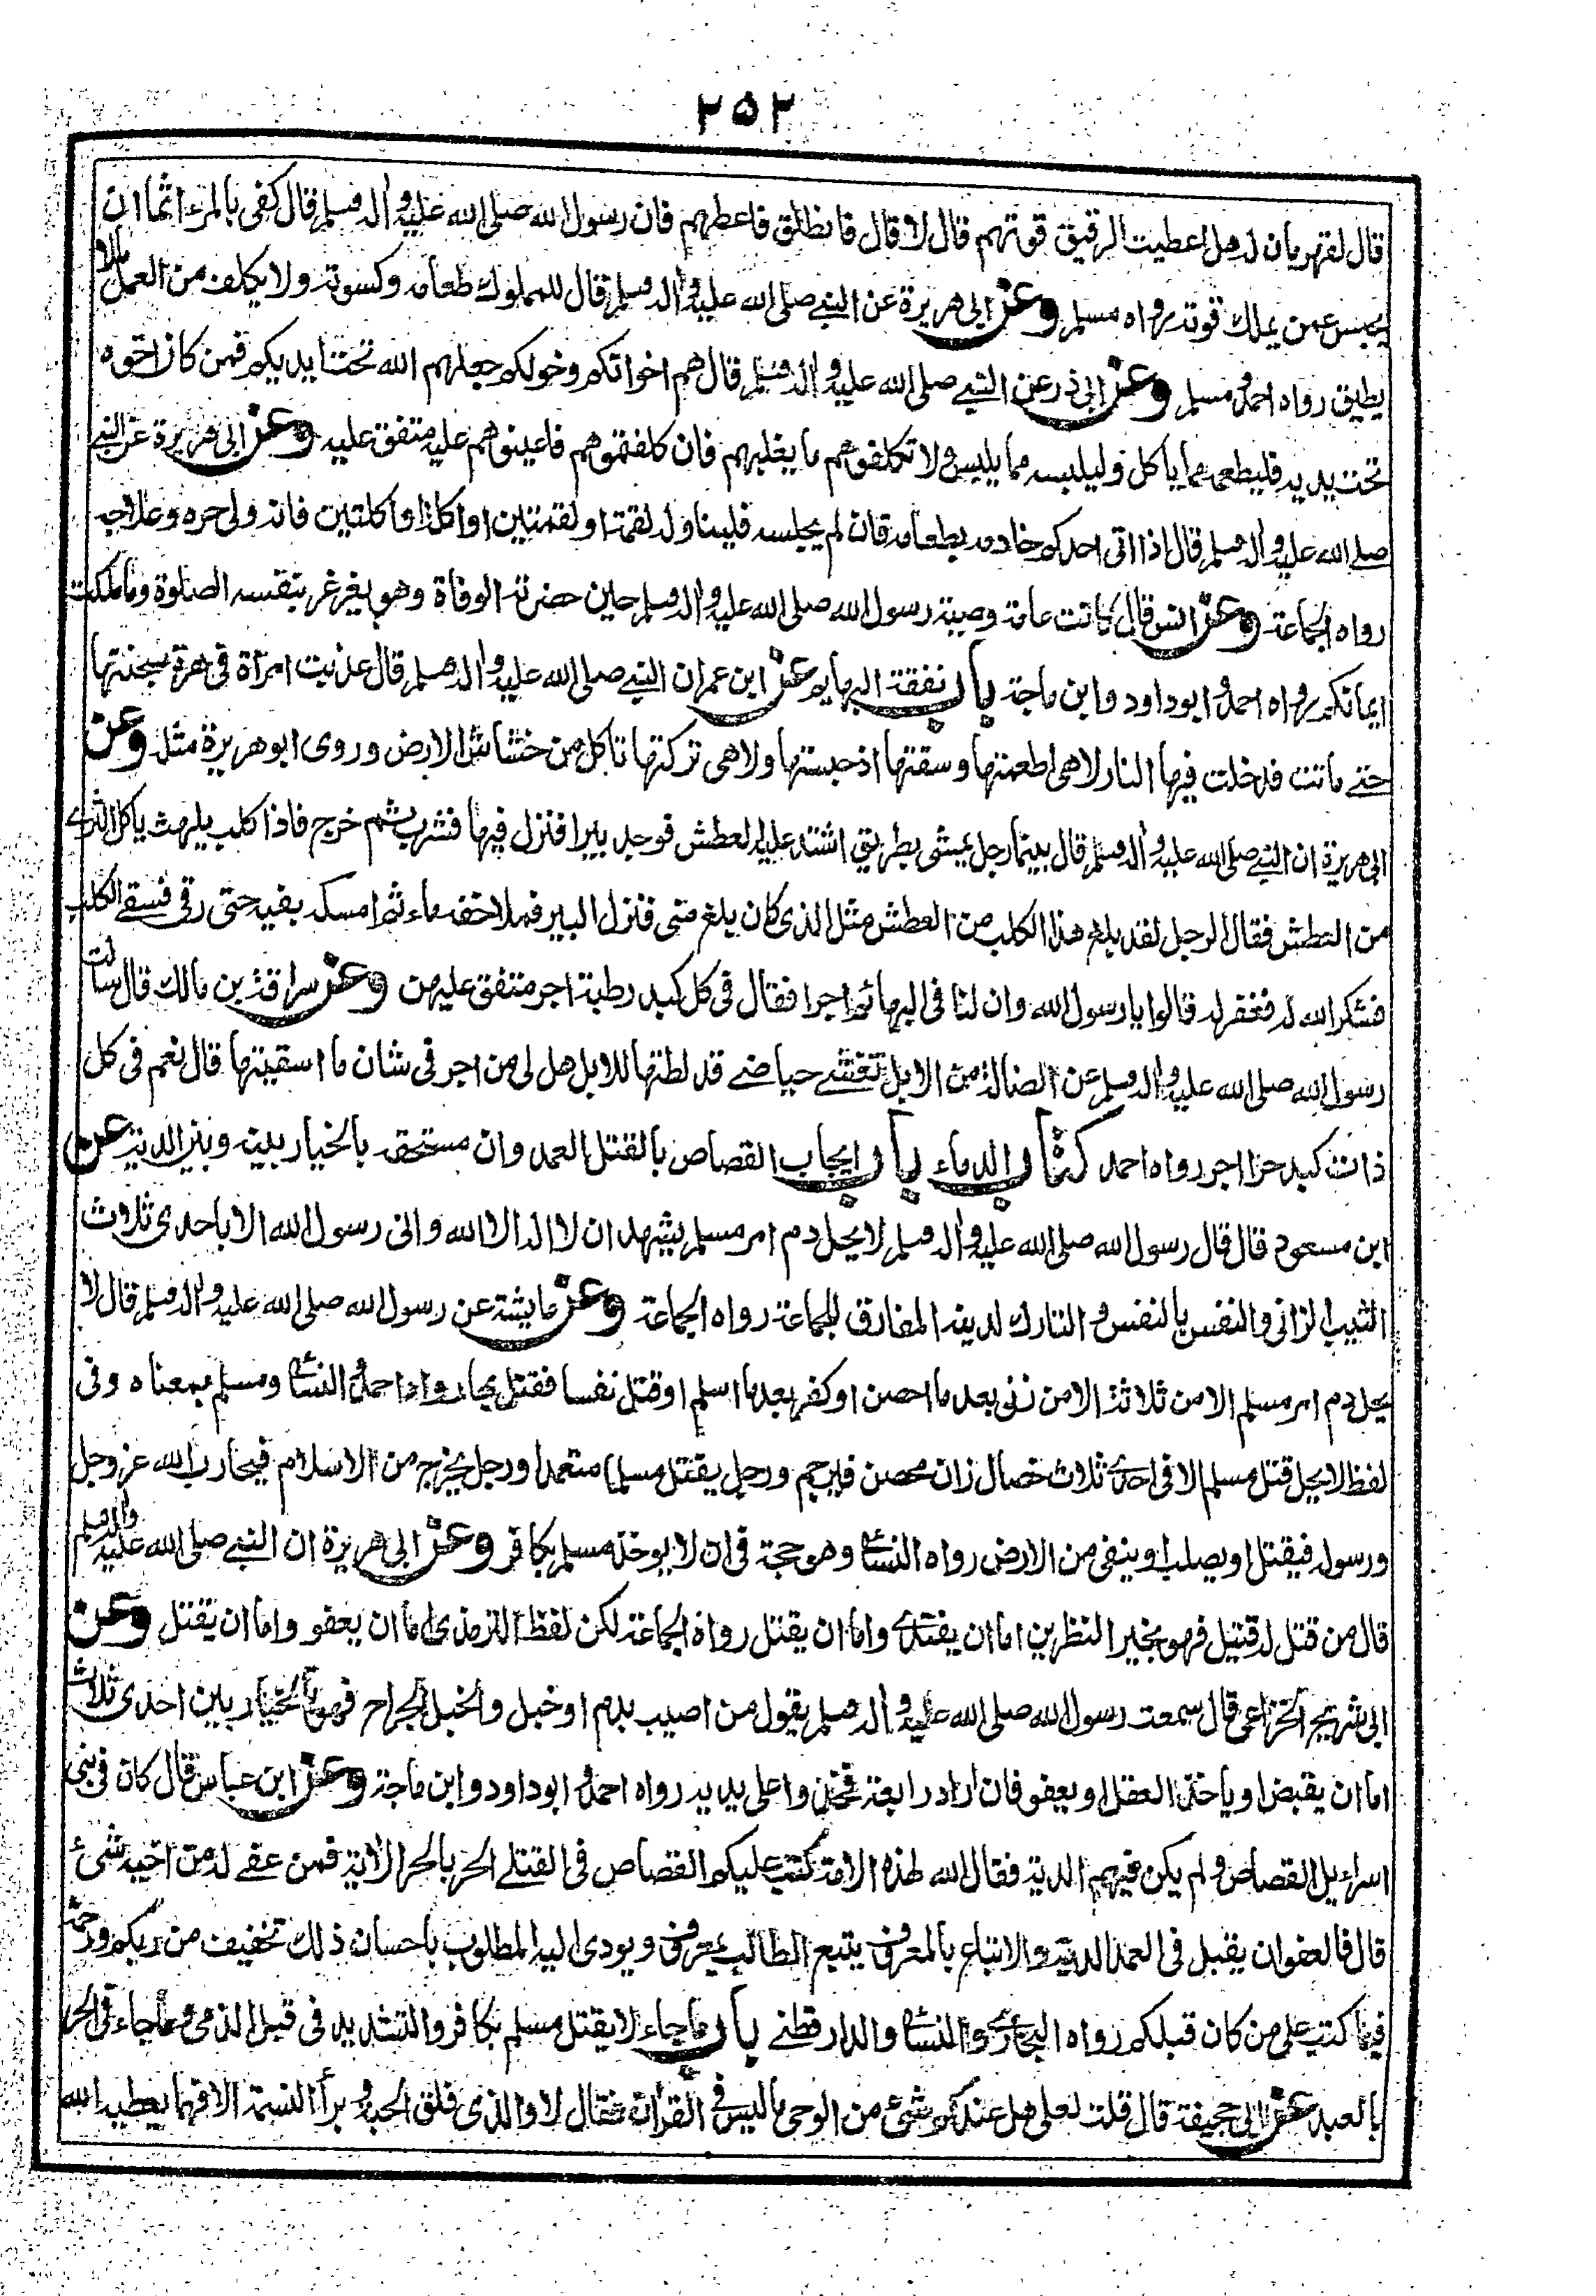 ٢٥٣
قال لقهرمان له هل اعطيت الرقيق قوتهم قال لا قال فانطلق فاعطهم فان رسول الله صلى الله عليه واله وسلم قال كفى بالمرء اثما ان
يحبس عمن يملك قوته رواه مسلم وعن ابى هريرة عن النبي صلى الله عليه واله وسلم قال للمملوك طعامه وكسوته ولا يكلف من العمل ما لا
يطيق رواه احمد ومسلم وعن ابى ذر عن النبي صلى الله عليه واله وسلم قال هم اخوانكم وخولكم جعلهم الله تحت ايديكم فمن كان اخوه
تحت يديه فليطعمه مما ياكل وليلبسه مما يلبس ولا تكلفوهم ما يغلبهم فان كلفتموهم فاعينوهم عليه متفق عليه وعن ابى هريرة عن النبي
صلى الله عليه واله وسلم قال اذا اتى احدكم خادمه بطعامه فان لم يجلسه فليناوله لقمة او لقمتين او اكلة او اكلتين فانه ولى حره وعلاجه
رواه الجماعة وعن انس قال كانت عامة وصية رسول الله صلى الله عليه واله وسلم حين حضرته الوفاة وهو يغرغر بنفسه الصلوة وما ملكت
ايمانكم رواه احمد وابوداود وابن ماجة باب نفقة البهايم عن ابن عمر ان النبي صلى الله عليه واله وسلم قال عذبت امرأة في هرة سجنتها
حتى ماتت فدخلت فيها النار لا هى اطعمتها وسقتها اذ حبستها ولا هى تركتها تاكل من خشاش الارض وروى ابو هريرة مثله وعن
ابى هريرة ان النبي صلى الله عليه واله وسلم قال بينما رجل يمشى بطريق اشتد عليه العطش فوجد بيرا فنزل فيها فشرب ثم خرج فاذا كلب يلهث ياكل الثرى
من العطش فقال الرجل لقد بلغ هذا الكلب من العطش مثل الذى كان بلغ منى فنزل البير فملا خفه ماء ثم امسكه بفيه حتى رقى فسقى الكلب
فشكر الله له فغفر له قالوا يا رسول الله وان لنا فى البهائم اجرا فقال فى كل كبد رطبة اجر متفق عليهن وعن سراقة بن مالك قال سالت
رسول الله صلى الله عليه واله وسلم عن الضالة من الابل تغشى حياضى قد لطتها للابل هل لى من اجر فى شان ما اسقيتها قال نعم فى كل
ذات كبد حرا اجر رواه احمد كتاب الدماء باب ايجاب القصاص بالقتل العمد وان مستحقه بالخيار بينه وبين الدية عن
ابن مسعود قال قال رسول الله صلى الله عليه واله وسلم لا يحل دم امر مسلم يشهد ان لا اله الا الله وانى رسول الله الا باحدى ثلاث
الثيب الزانى والنفس بالنفس والتارك لدينه المفارق للجماعة رواه الجماعة وعن عايشة عن رسول الله صلى الله عليه واله وسلم قال لا
يحل دم امر مسلم الا من ثلاثة الا من زنى بعد ما احصن او كفر بعد ما اسلم او قتل نفسا فقتل بها رواه احمد والنسائى ومسلم بمعناه وفى
لفظ لا يحل قتل مسلم الا فى احدى ثلاث خصال زان محصن فيرجم ورجل يقتل مسلما متعمدا ورجل يخرج من الاسلام فيحارب الله عز وجل
ورسوله فيقتل او يصلب او ينفى من الارض رواه النسائى وهو حجة فى ان لا يوخذ مسلم بكافر وعن ابى هريرة ان النبي صلى الله عليه واله وسلم
قال من قتل له قتيل فهو بخير النظرين اما ان يفتدى واما ان يقتل رواه الجماعة لكن لفظ الترمذى اما ان يعفو واما ان يقتل وعن
ابى شريح الخزاعى قال سمعت رسول الله صلى الله عليه واله وسلم يقول من اصيب بدم او خبل والخبل الجراح فهو بالخيار بين احدى ثلاث
اما ان يقتص او ياخذ العقل او يعفو فان اراد رابعة فخذوا على يديه رواه احمد وابوداود وابن ماجة وعن ابن عباس قال كان فى بنى
اسراءيل القصاص ولم يكن فيهم الدية فقال الله لهذه الامة كتب عليكم القصاص فى القتلى الحر بالحر الاية فمن عفى له من اخيه شىء
قال فالعفو ان يقبل فى العمد الدية والاتباع بالمعروف يتبع الطالب بمعروف ويودى اليه المطلوب باحسان ذلك تخفيف من ربكم ورحمة
فيما كتب على من كان قبلكم رواه البخارى والنسائى والدارقطنى باب ما جاء لا يقتل مسلم بكافر والتشديد فى قتل الذمى وما جاء فى الحر
بالعبد عن ابى جحيفة قال قلت لعلى هل عندكم شىء من الوحى ما ليس فى القرآن فقال لا والذى فلق الحبة وبرأ النسمة الا فهما يعطيه الله